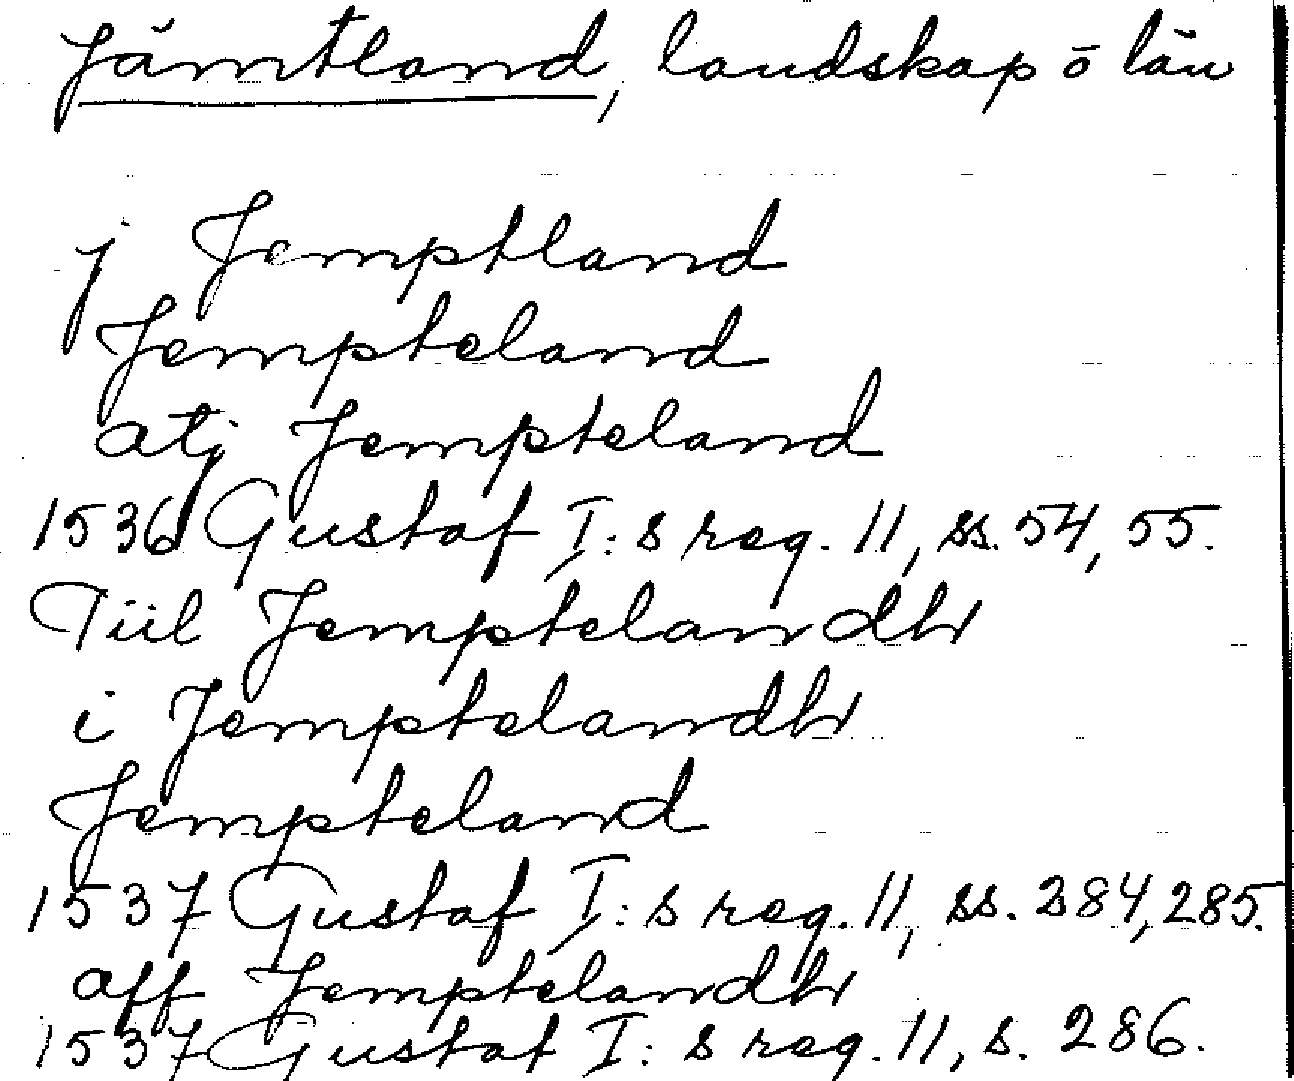 Jämtland, landskap o län
j Jemptland
Jempteland
atj Jempteland
1536 Gustaf I:s reg. 11, ss. 54, 55.
Tiil Jemptelandh
i Jemptelandh
Jempteland
1537 Gustaf I:s reg. 11, ss. 284, 285.
aff Jemptelandh
1537 Gustaf I:s reg. 11, s. 286.